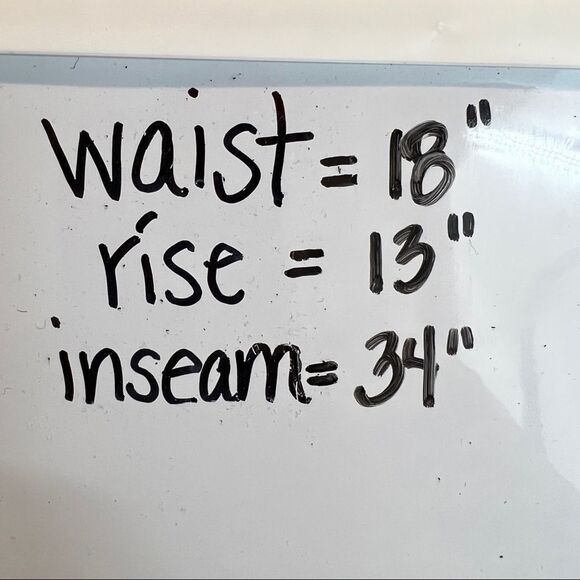 waist = 18"
rise = 13"
inseam = 34"